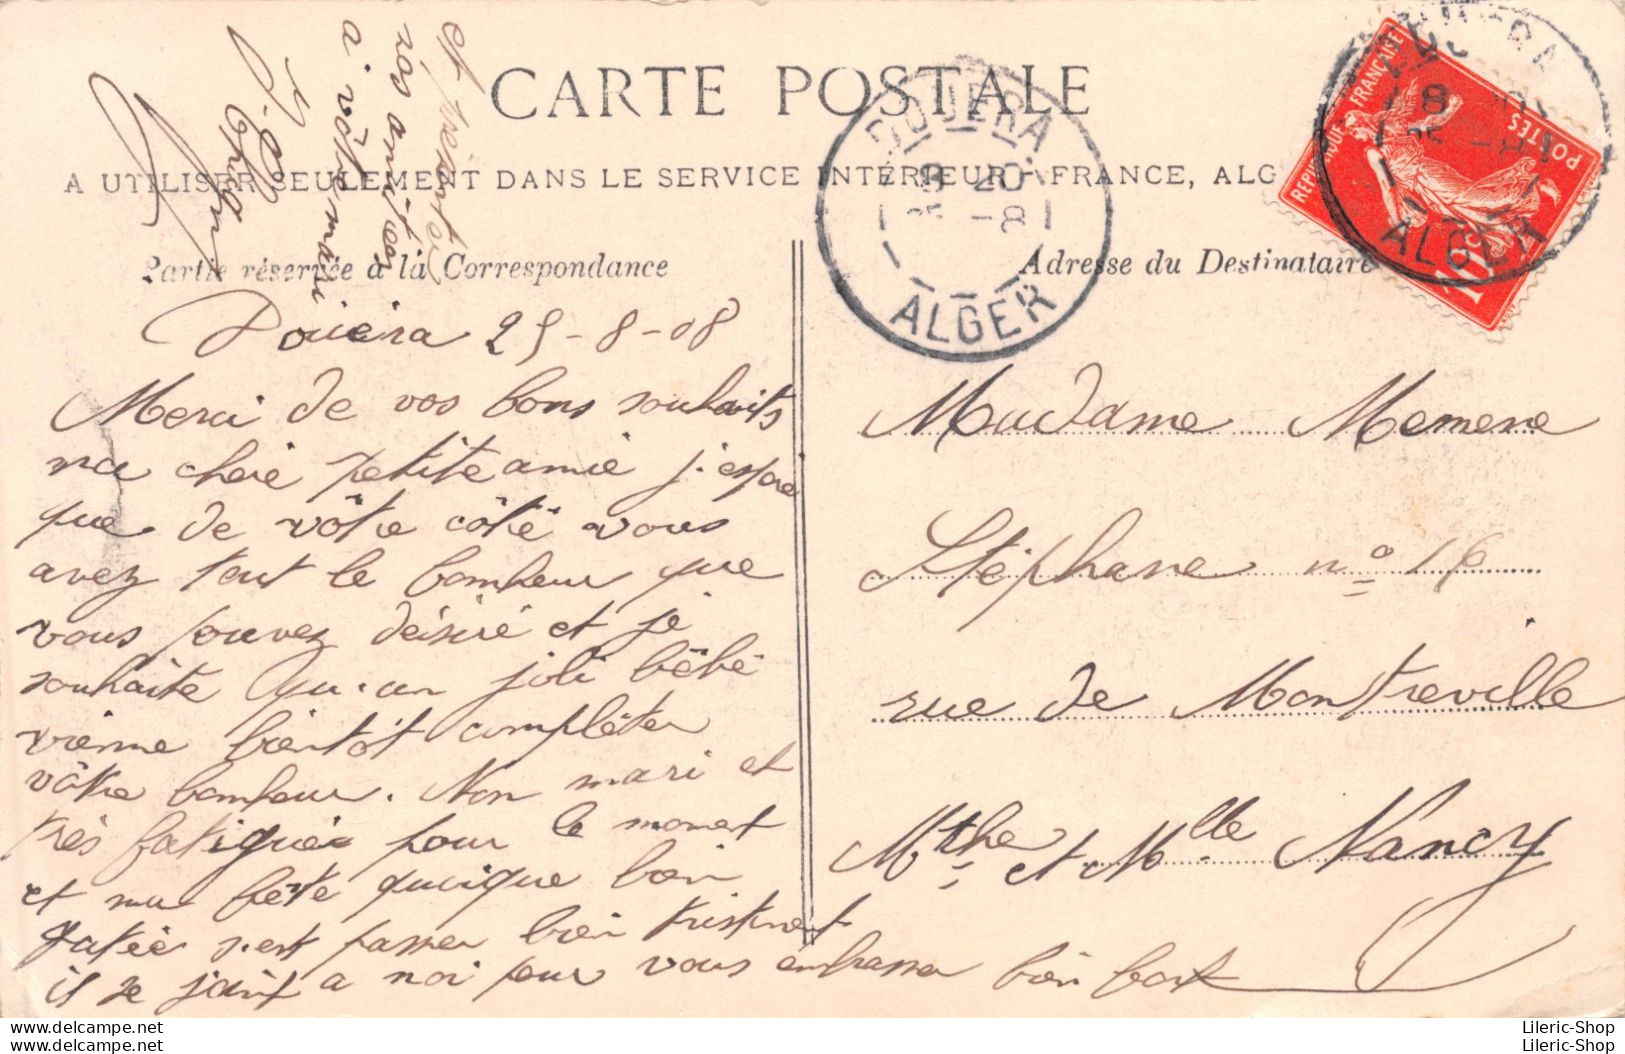 CARTE POSTALE
A UTILISER SEULEMENT DANS LE SERVICE INTÉRIEUR - FRANCE, ALG
Partie réservée à la Correspondance
Adresse du Destinataire
DOUERA
ALGER
REPUBLIQUE FRANÇAISE
POSTES
10c
ALGER
Douera 25-8-08
Merci de vos bons souhaits
ma chere petite amie j'espère
que de vôtre côté vous
avez tout le bonheur que
vous pouvez désiré et je
souhaite qu'un joli bébé
vienne bientôt complèter
vôtre bonheur. Mon mari et
très fatiguée pour le moment
et ma fête quoique bien
gatée s'est passer bien tristement
il se joint a moi pour vous embrasser bien fort
et présentez
nos amitiés
a vôtre mari
Madame Memene
Stéphane n° 16
rue de Montreville
Mthe et Mlle Nancy
www.delcampe.net
www.delcampe.net
Lileric-Shop
Lileric-Shop